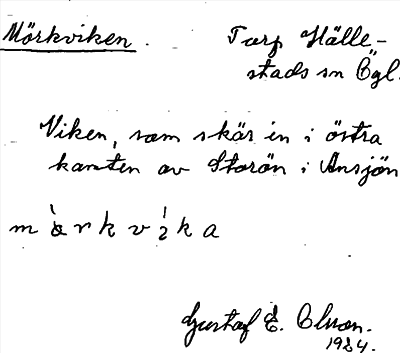 Mörkviken. Tarp Hälle-
stads sn Ögl.
Viken, som skär in i östra
kanten av Storön i Ånsjön
Gustaf E. Olson.
1924.